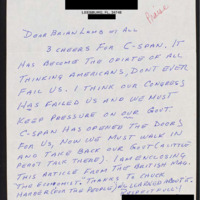 LEESBURG, FL 34748
Dear Brian Lamb et al
3 cheers for C-SPAN. It
has become the opiate of all
thinking Americans, don't ever
fail us. I think our Congress
has failed us and we must
keep pressure on our govt.
C-SPAN has opened the doors
for us, now we must walk in
and take back our govt (a little
there). I am enclosing
this article from the British mag.
The Economist. Thanks to
(for the people) we learned about it.
Respectfully!